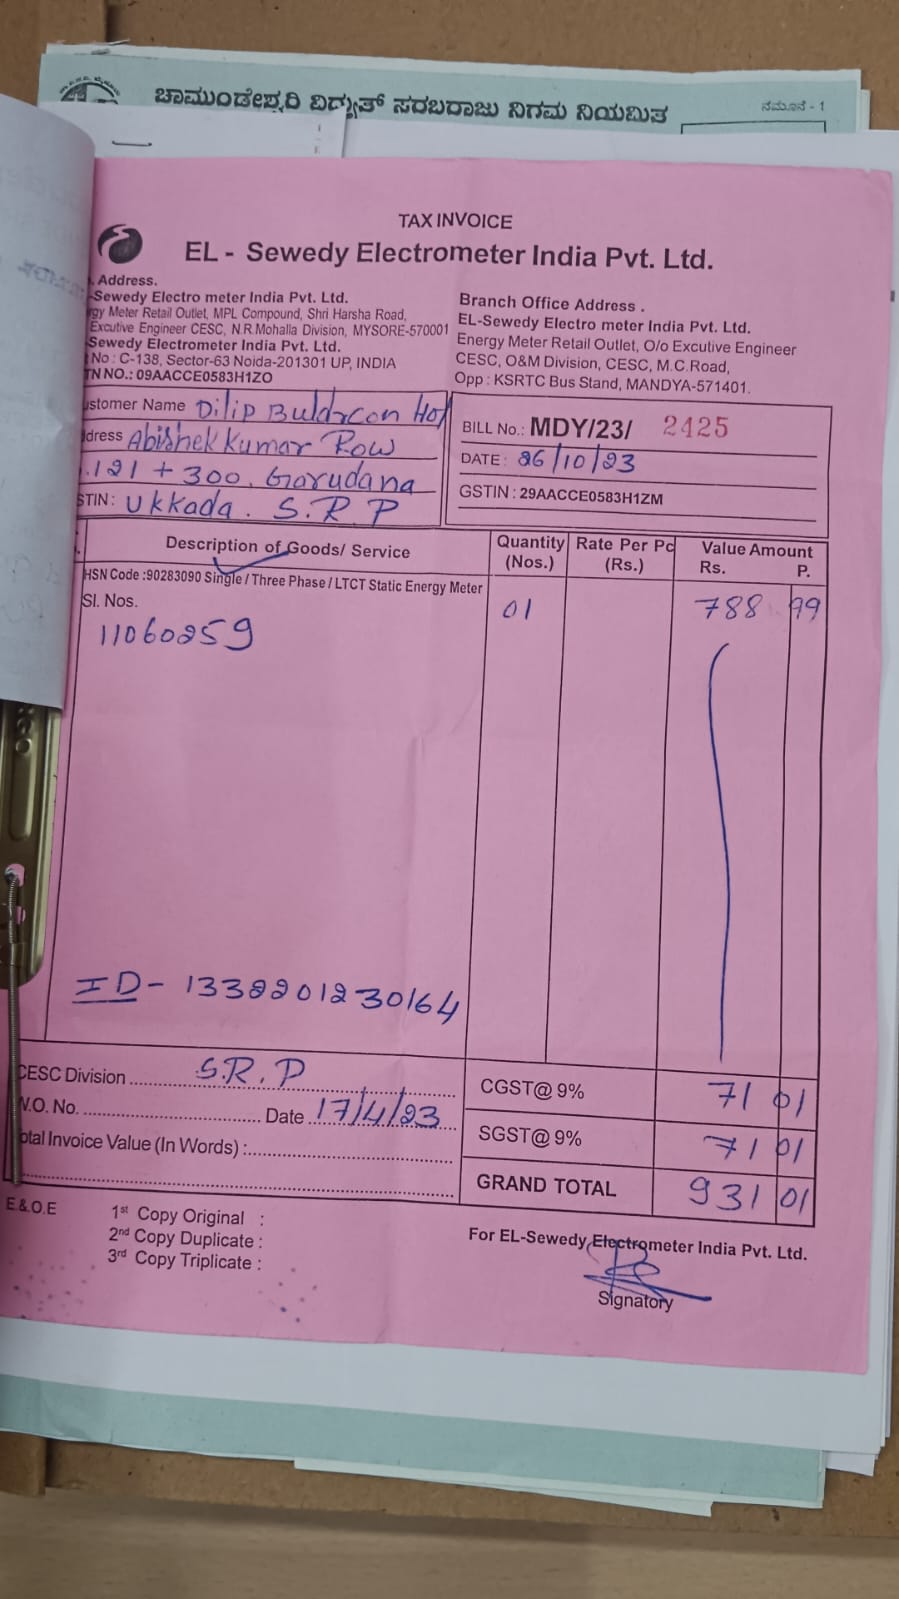 ಚಾಮುಂಡೇಶ್ವರಿ ವಿದ್ಯುತ್ ಸರಬರಾಜು ನಿಗಮ ನಿಯಮಿತ
ನಮೂನೆ - 1
TAX INVOICE
EL - Sewedy Electrometer India Pvt. Ltd.
. Address.
-Sewedy Electro meter India Pvt. Ltd.
rgy Meter Retail Outlet, MPL Compound, Shri Harsha Road,
Excutive Engineer CESC, N.R.Mohalla Division, MYSORE-570001
Sewedy Electrometer Pvt. Ltd.
No : C-138, Sector-63 Noida-201301 UP, INDIA
TN NO.: 09AACCE0583H1ZO
Branch Office Address .
EL-Sewedy Electro meter India Pvt. Ltd.
Energy Meter Retail Outlet, O/o Excutive Engineer
CESC, O&M Division, CESC, M.C.Road,
Opp : KSRTC Bus Stand, MANDYA-571401.
ustomer Name Dilip Buldrcon Hot
dress Abishek Kumar Row
.121 + 300, Garudana
STIN: Ukkada. S.R.P
BILL No.: MDY/23/ 2425
DATE: 26/10/23
GSTIN : 29AACCE0583H1ZM
Description of Goods/ Service
Quantity (Nos.)
Rate Per Pc (Rs.)
Value Amount
Rs. P.
HSN Code :90283090 Single / Three Phase / LTCT Static Energy Meter
Sl. Nos.
01 788 99
11060259
ID - 1332201230164
CESC Division S.R.P
W.O. No. Date 17/4/23
otal Invoice Value (In Words) :
CGST@ 9% 71 01
SGST@ 9% 71 01
GRAND TOTAL 931 01
E.&.O.E
1st Copy Original :
2nd Copy Duplicate :
3rd Copy Triplicate :
For EL-Sewedy Electrometer India Pvt. Ltd.
Signatory